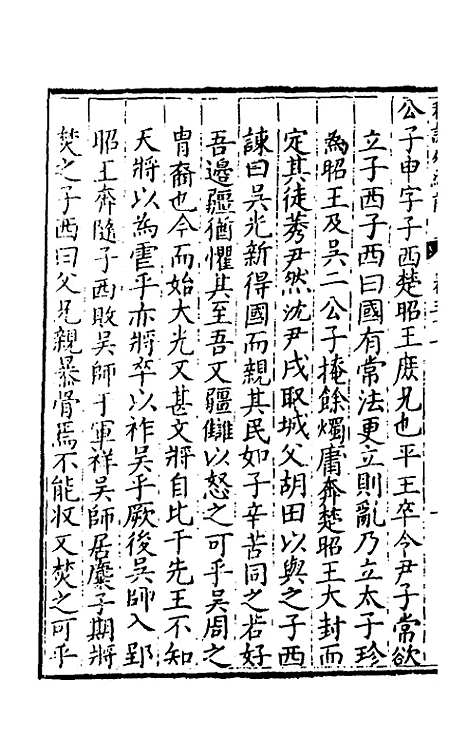 公子申字子西楚昭王庶兄也平王卒令尹子常欲
立子西子西曰國有常法更立則亂乃立太子珍
為昭王及吳二公子掩餘燭庸奔楚昭王大封而
定其徒莠尹然沈尹戌取城父胡田以與之子西
諫曰吳光新得國而親其民如子辛苦同之若好
吾邊疆猶懼其至吾又疆讎以怒之可乎吳周之
冑裔也今而始大光又甚文將自比于先王不知
天將以為虐乎亦將卒以祚吳乎厥後吳師入郢
昭王奔隨子西敗吳師于軍祥吳師居麇子期將
焚之子西曰父兄親暴骨焉不能收又焚之可乎